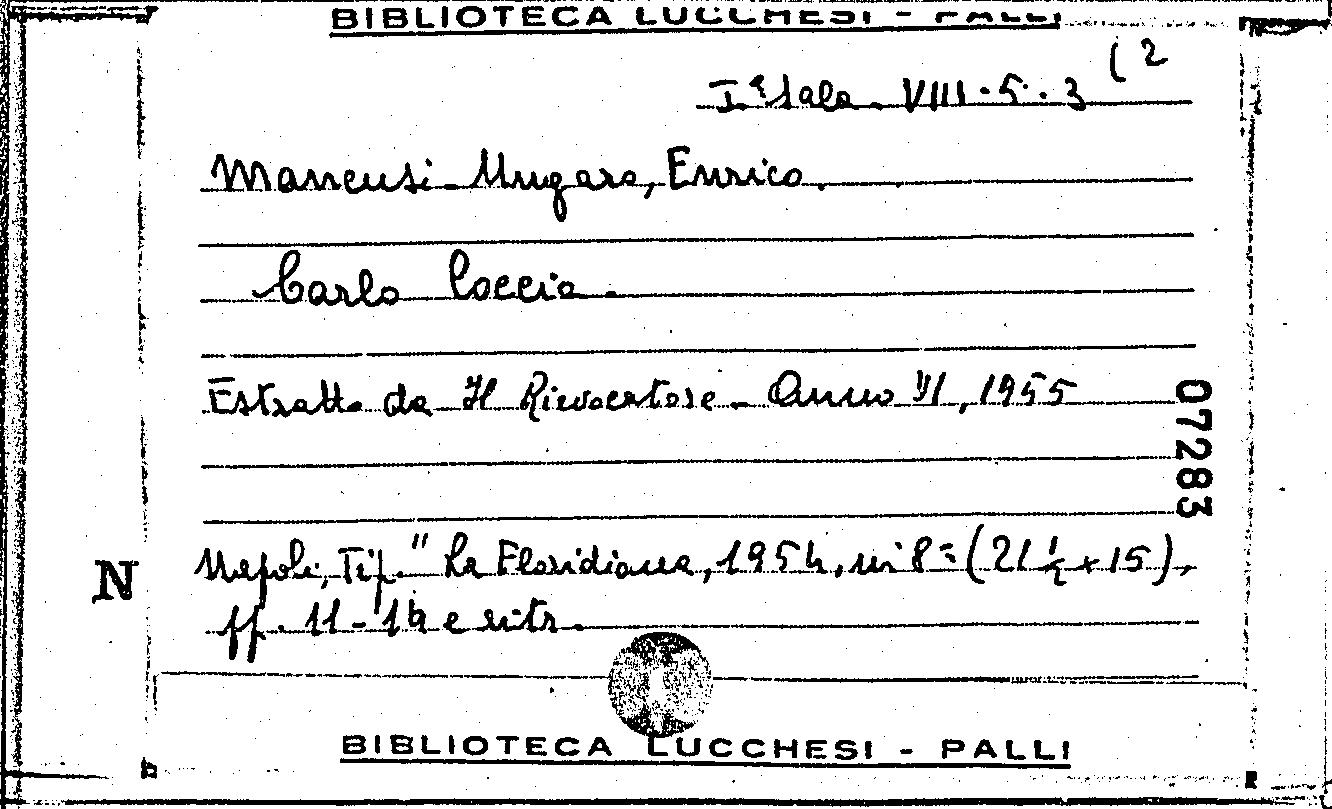 BIBLIOTECA LUCCHESI - PALLI
Iª Sala. VIII. 5. 3 (2
Mancusi-Mugaro, Enrico.
Carlo Coccia.
Estratto da Il Rievocatore - Anno VI, 1955
07283
N
Napoli, Tip. "La Floridiana, 1954, in 8º (21 ½ x 15),
pp. 11-14 e ritr.
BIBLIOTECA LUCCHESI - PALLI